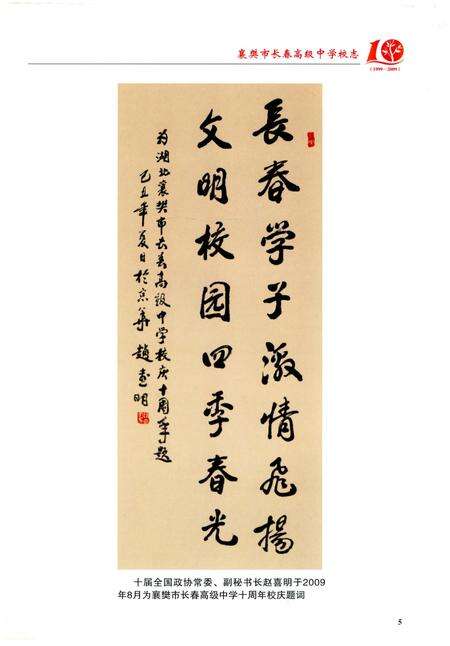 襄樊市长春高级中学校志
10
(1999-2009)
長春学子激情飛揚
文明校园四季春光
为湖北襄樊市长春高级中学校庆十周年题
己丑年夏日於京华 趙喜明
十届全国政协常委、副秘书长赵喜明于2009
年8月为襄樊市长春高级中学十周年校庆题词
5